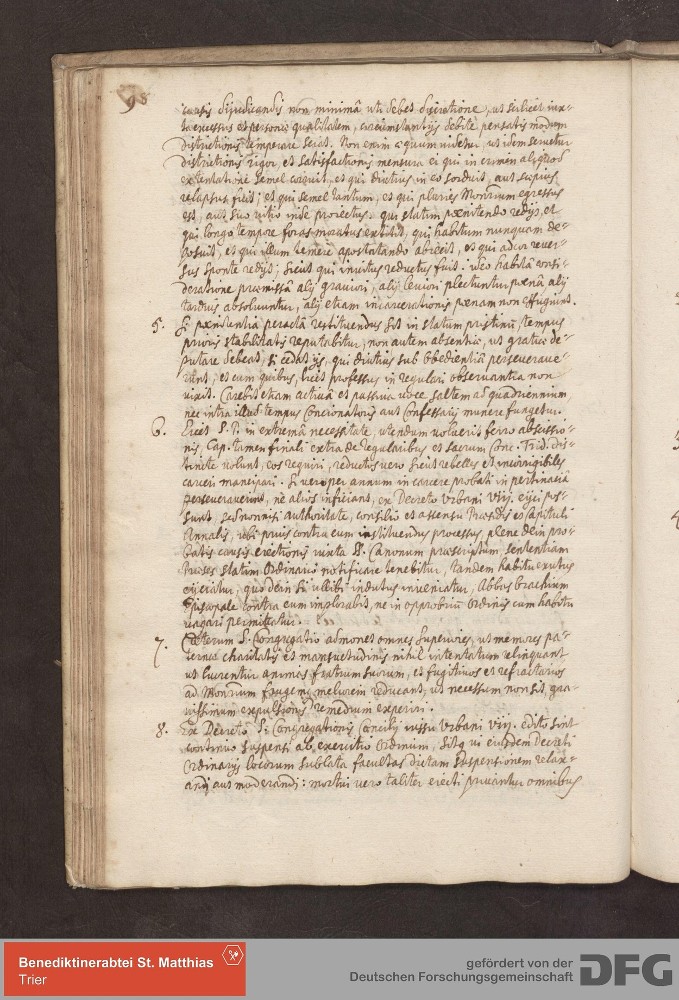 98
causis dijudicandis non minimâ uti debet discretione, ut scilicet iux-
ta excessus et personae qualitatem, circumstantijs debite pensatis modum
districtionis temperare sciat. Non enim aequum videtur, ut idem servetur
districtionis rigor, et satisfactionis mensura ei qui in crimen aliquod
ex tentatione semel corruit, et qui diutius in eo sorduit, aut saepius
relapsus fuit; et qui semel tantum, et qui pluries Monrium egressus
est, aut suo vitio inde proiectus. qui statim poenitendo redijt, et
qui longo tempore foras moratus extitit, qui habitum nunquam de-
posuit, et qui illum temere apostatando abiecit, et qui ad cor rever-
sus sponte redijt; sicut qui invitus reductus fuit. ideo habitâ consi-
deratione praemissâ alij graviori, alij leviori plectuntur poenâ alij
tardius absolvuntur, alij etiam incarcerationis poenam non effugiunt.
5. Si poenitentiâ peractâ restituendus sit in statum pristinum, tempus
prioris stabilitatis reputabitur, non autem absentiae, ut gratiae de-
putare debeat, si cedat ijs, qui diutius sub obedientiâ perseverave-
runt, et cum quibus, licet professus in regulari observantia non
vixit. Carebit etiam activâ et passiva voce saltem ad quadriennium
nec intra illud tempus Concionatoris aut Confessarij munere fungetur.
6. Licet S. P. in extremâ necessitate, utendum voluerit ferro abscissio-
nis, Cap. tamen finali extra de regularibus et sacrum Conc. Trid. dis-
tincte volunt, eos requiri, reductos vero sicut rebelles et incorrigibiles
carceri mancipari. Si vero per annum in carcere probati in pertinaciâ
perseveraverint, ne alios inficiant, ex Decreto Urbani Viij. eijci pos-
sunt, sed nonnisi authoritate, consilio et assensu Praesidis et Capituli
Annalis, ubi prius contra eum instituendus processus, plene dein pro-
batis causis eiectionis iuxta SS. Canonum praescriptum, sententiam
Praeses statim Ordinario notificare tenebitur, tandem habitu exutus
eijciatur, quo dein si ullibi indutus inveniatur, Abbas brachium
Episcopale contra eum implorabit, ne in opprobrium Ordinis cum habitu
vagari permittatur.
7. Caeterum S. Congregatio admonet omnes Superiores, ut memores pa-
ternae charitatis et mansuetudinis nihil intentatum relinquant
ut lucrentur animas fratrum suorum, et fugitivos et refractarios
ad Monrium frugem meliorem reducant, ut necessum non sit, gra-
vissimum expulsionis remedium experiri.
8. Ex Decreto S. Congregationis Concilij iussu Urbani viij. edito sint
continuo suspensi ab exercitio Ordinum, sitq vi eiusdem Decreti
Ordinarijs locorum sublata facultas dictam suspensionem relax-
andi aut moderandi: mortui vero taliter eiecti privantur omnibus
Benediktinerabtei St. Matthias
Trier
gefördert von der
Deutschen Forschungsgemeinschaft
DFG